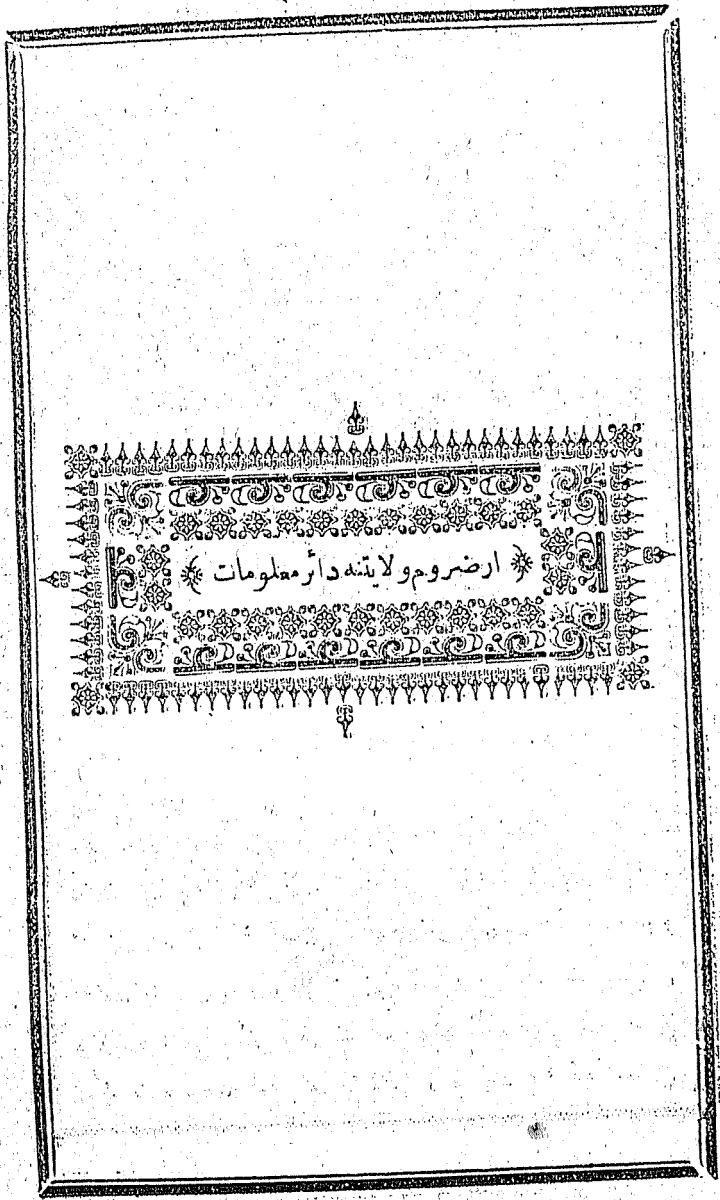 ﴿ ارضروم ولایتنه دائر معلومات ﴾